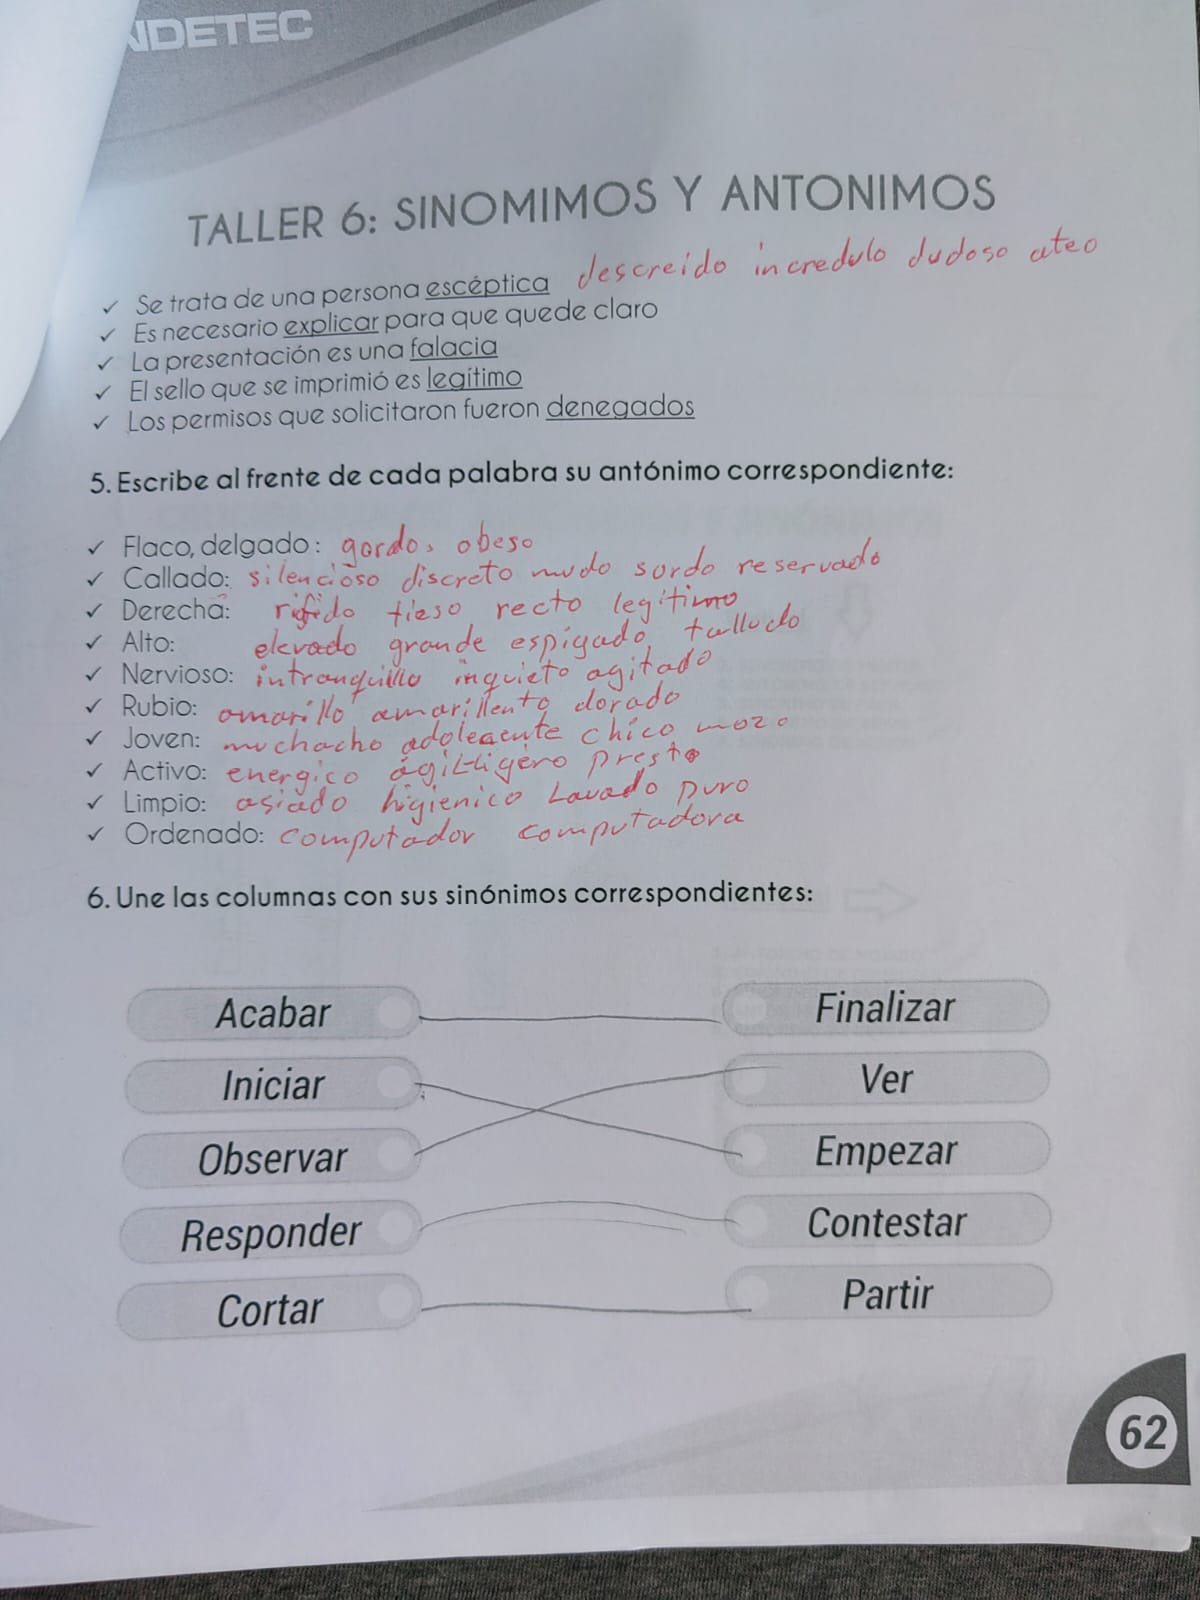 NDETEC
TALLER 6: SINOMIMOS Y ANTONIMOS
✓ Se trata de una persona escéptica descreído incredulo dudoso ateo
✓ Es necesario explicar para que quede claro
✓ La presentación es una falacia
✓ El sello que se imprimió es legítimo
✓ Los permisos que solicitaron fueron denegados
5. Escribe al frente de cada palabra su antónimo correspondiente:
✓ Flaco, delgado: gordo, obeso
✓ Callado: silencioso discreto mudo sordo reservado
✓ Derecha: tieso recto legítimo
✓ Alto: elevado grande espigado talludo
✓ Nervioso: intranquillo inquieto agitado
✓ Rubio: amarillo amarillento dorado
✓ Joven: muchacho chico mozo
✓ Activo: energico ágil-ligero presto
✓ Limpio: asiado higienico Lavado puro
✓ Ordenado: computador computadora
6. Une las columnas con sus sinónimos correspondientes:
Acabar Finalizar
Iniciar Ver
Observar Empezar
Responder Contestar
Cortar Partir
62